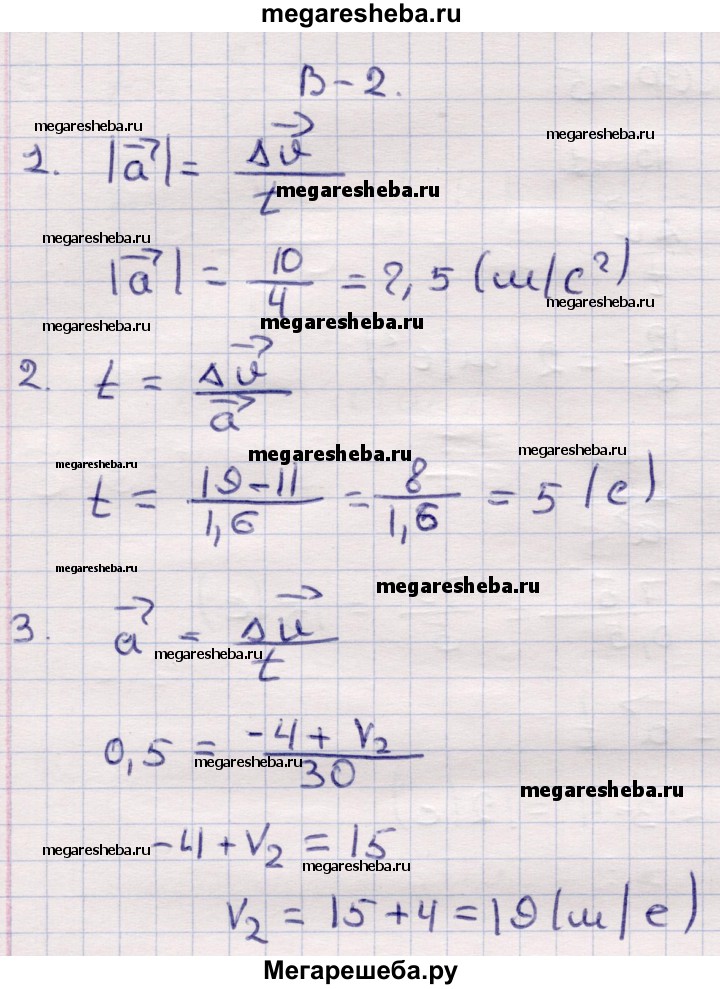 megaresheba.ru
В-2.
megaresheba.ru
megaresheba.ru
1. |a⃗| = Δv⃗ / t
megaresheba.ru
megaresheba.ru
|a⃗| = 10/4 = 2,5 (м/с²)
megaresheba.ru
megaresheba.ru
megaresheba.ru
2. t = Δv⃗ / a⃗
megaresheba.ru
megaresheba.ru
megaresheba.ru
t = (19-11)/1,6 = 8/1,6 = 5 (с)
megaresheba.ru
megaresheba.ru
3. a⃗ = Δv⃗ / t
megaresheba.ru
0,5 = (-4 + V₂)/30
megaresheba.ru
megaresheba.ru
-4 + V₂ = 15
megaresheba.ru
megaresheba.ru
V₂ = 15 + 4 = 19 (м/с)
Мегарешеба.ру